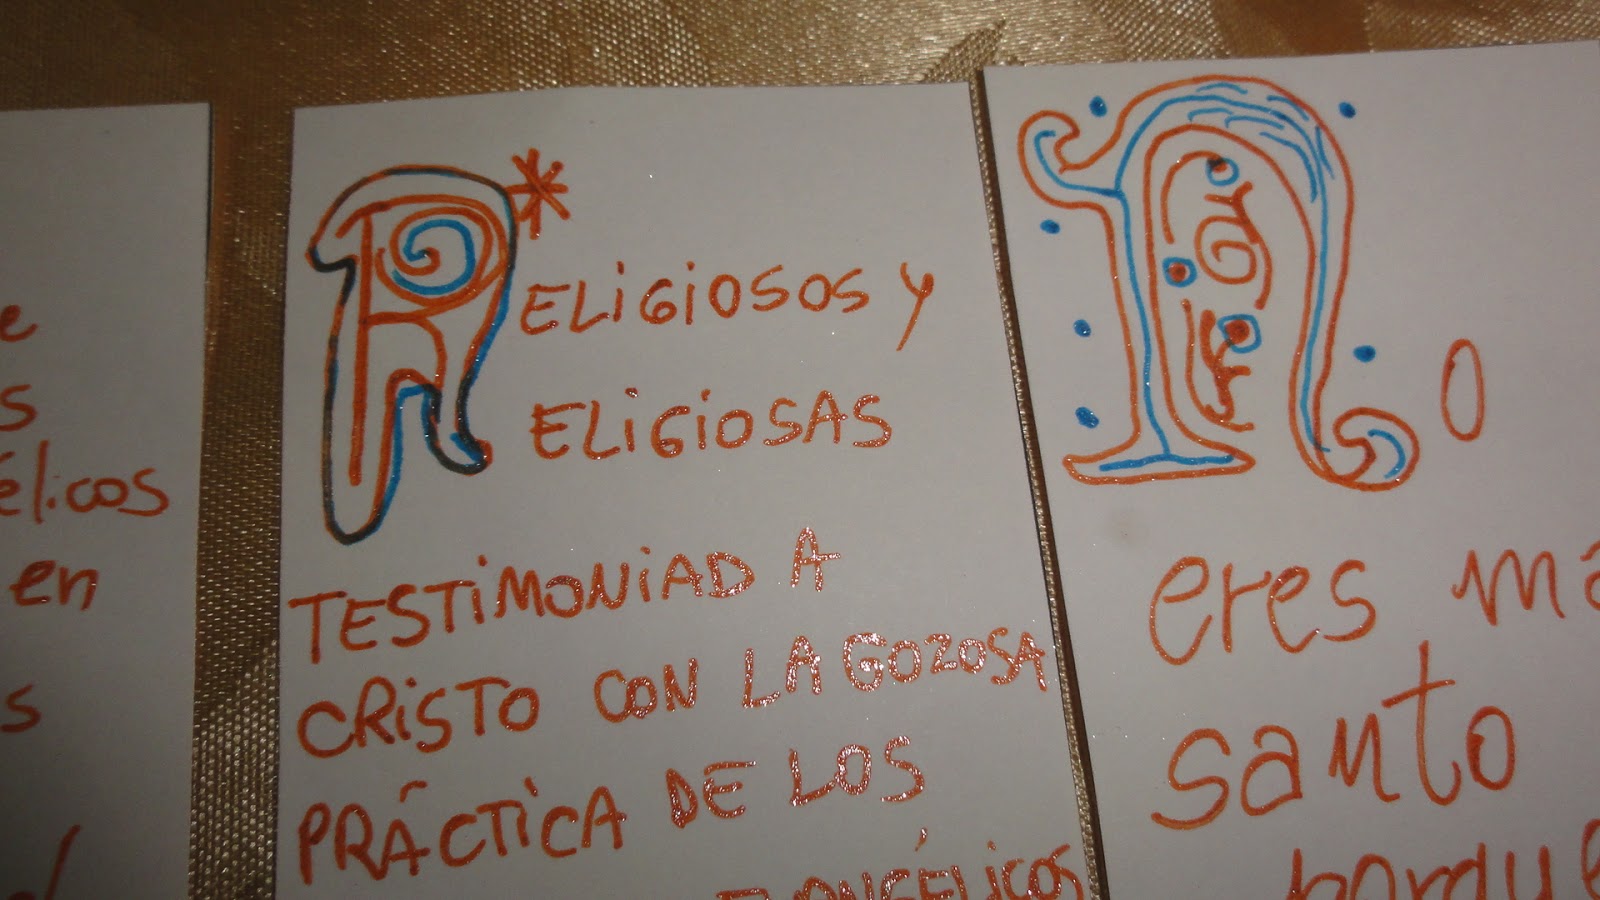 e
s
élicos
en
s
RELIGIOSOS Y
ELIGIOSAS
TESTIMONIAD A
CRISTO CON LA GOZOSA
PRÁCTICA DE LOS
EVANGÉLICOS
No
eres má
santo
porque